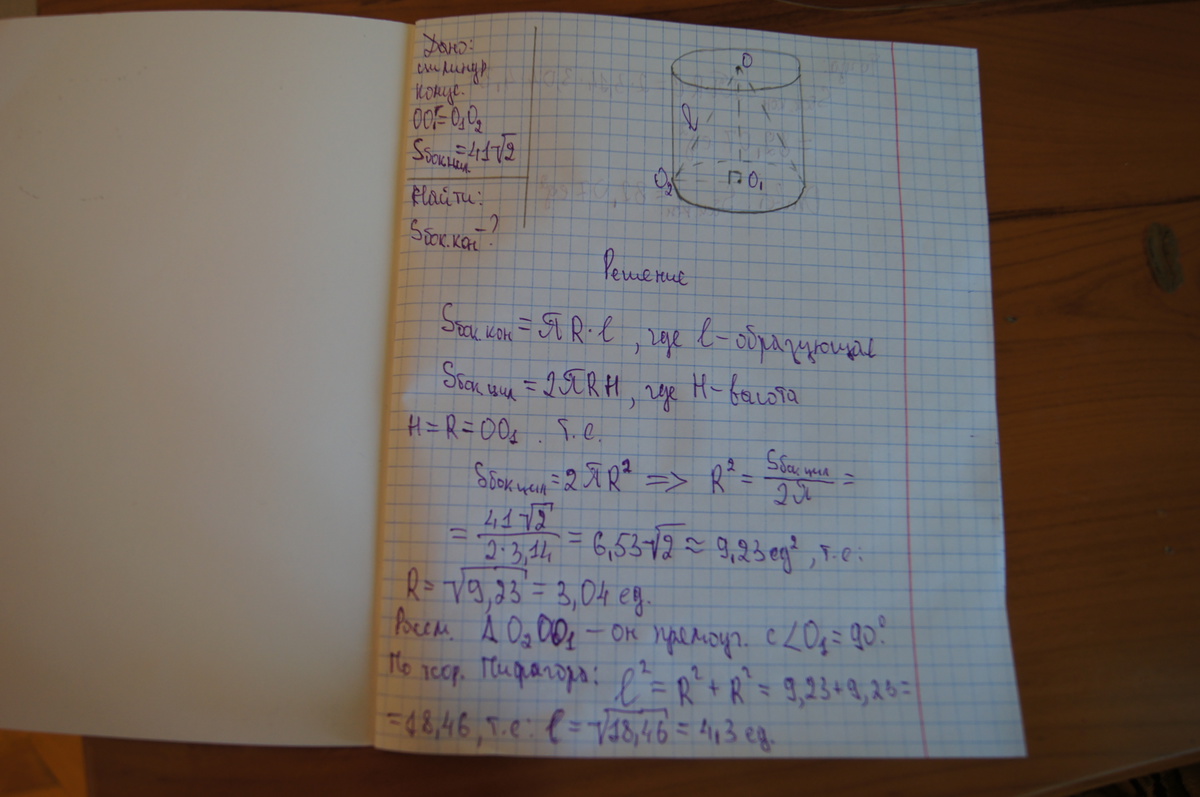 Дано:
цилиндр
конус.
OO₁=O₁O₂
Sбок.цил=41√2
Найти:
Sбок.кон-?
O
l
O₂
O₁
Решение
Sбок.кон = πR·l, где l-образующая
Sбок цил = 2πRH, где H-высота
H=R=OO₁. т.е.
Sбок цил = 2πR² => R² = Sбок цил/2π =
= 41√2/2·3,14 = 6,53√2 ≈ 9,23 ед², т.е:
R= √9,23 = 3,04 ед.
Рассм. Δ O₂OO₁ - он прямоуг. с ∠O₁ = 90°
По теор. Пифагора: l² = R² + R² = 9,23+9,23=
=18,46, т.е: l = √18,46 = 4,3 ед.